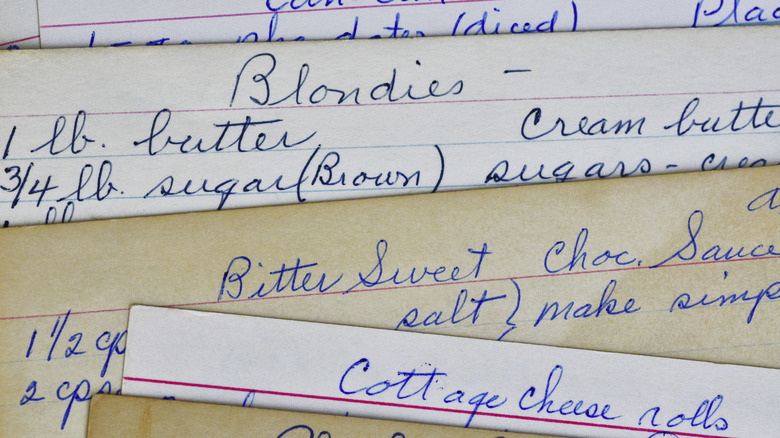 Plac
dates (diced)
Blondies -
1 lb. butter Cream butte
3/4 lb. sugar (Brown) sugars - crea
Bitter Sweet Choc. Sauce
salt } make simp
1 1/2 cp
2 cps
Cottage cheese rolls